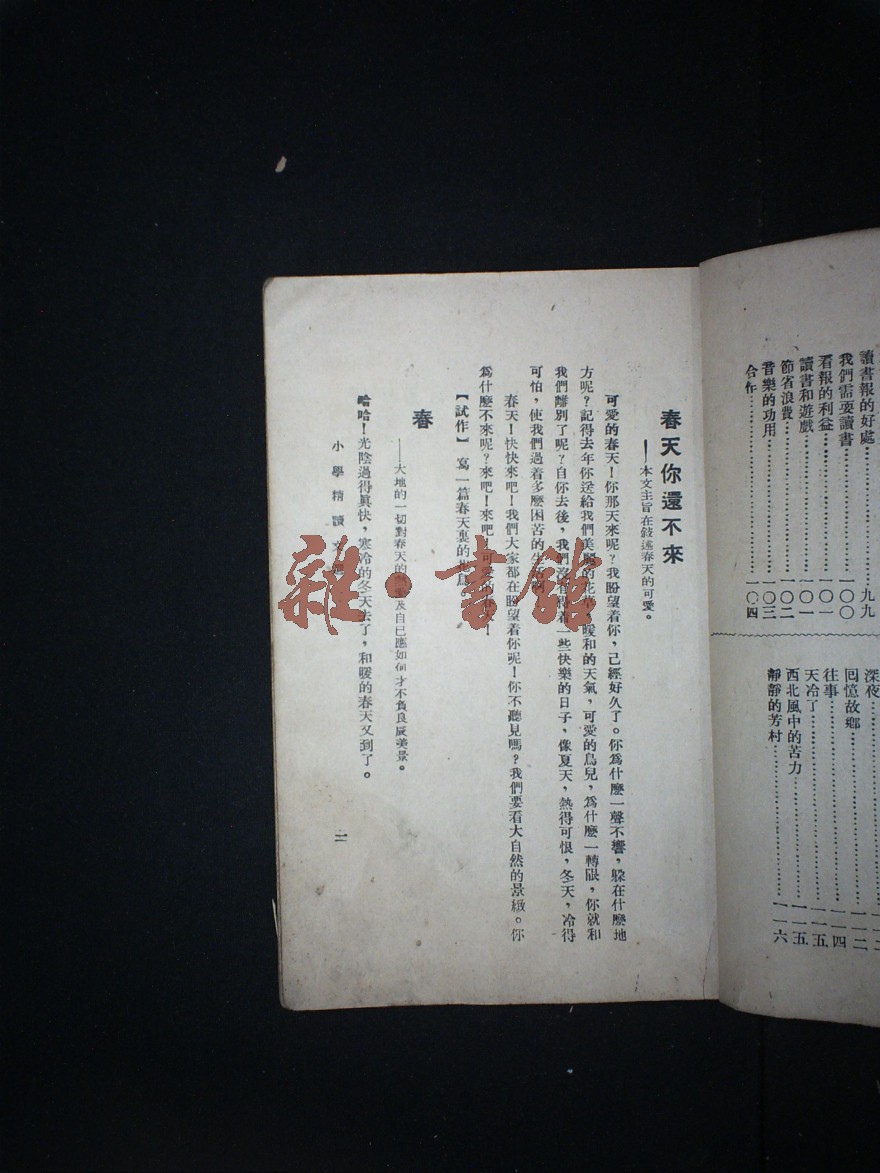 讀書報的好處………九九
我們需要讀書………一〇〇
看報的利益………一〇一
讀書和遊戲………一〇一
節省浪費………一〇二
音樂的功用………一〇三
合作………一〇四
深夜………
回憶故鄉………一一二
往事………一一四
天冷了………一一五
西北風中的苦力………一一五
靜靜的芳村………一一六
春天你還不來
——本文主旨在敍述春天的可愛。
可愛的春天！你那天來呢？我盼望着你，已經好久了。你爲什麽一聲不響，躱在什麽地
方呢？記得去年你送給我們美麗的花草，暖和的天氣，可愛的鳥兒，爲什麽一轉眼，你就和
我們離別了呢？自你去後，我們沒有得着一些快樂的日子，像夏天，熱得可恨，冬天，冷得
可怕，使我們過着多麽困苦的生活啊
春天！快快來吧！我們大家都在盼望着你呢！你不聽見嗎？我們要看大自然的景緻。你
爲什麽不來呢？來吧！來吧！可愛的！
【試作】寫一篇春天裏的
春
——大地的一切對春天的及自己應如何才不負良辰美景。
哈哈！光陰過得眞快，寒冷的冬天去了，和暖的春天又到了。
小學精讀文
二
雜·書館